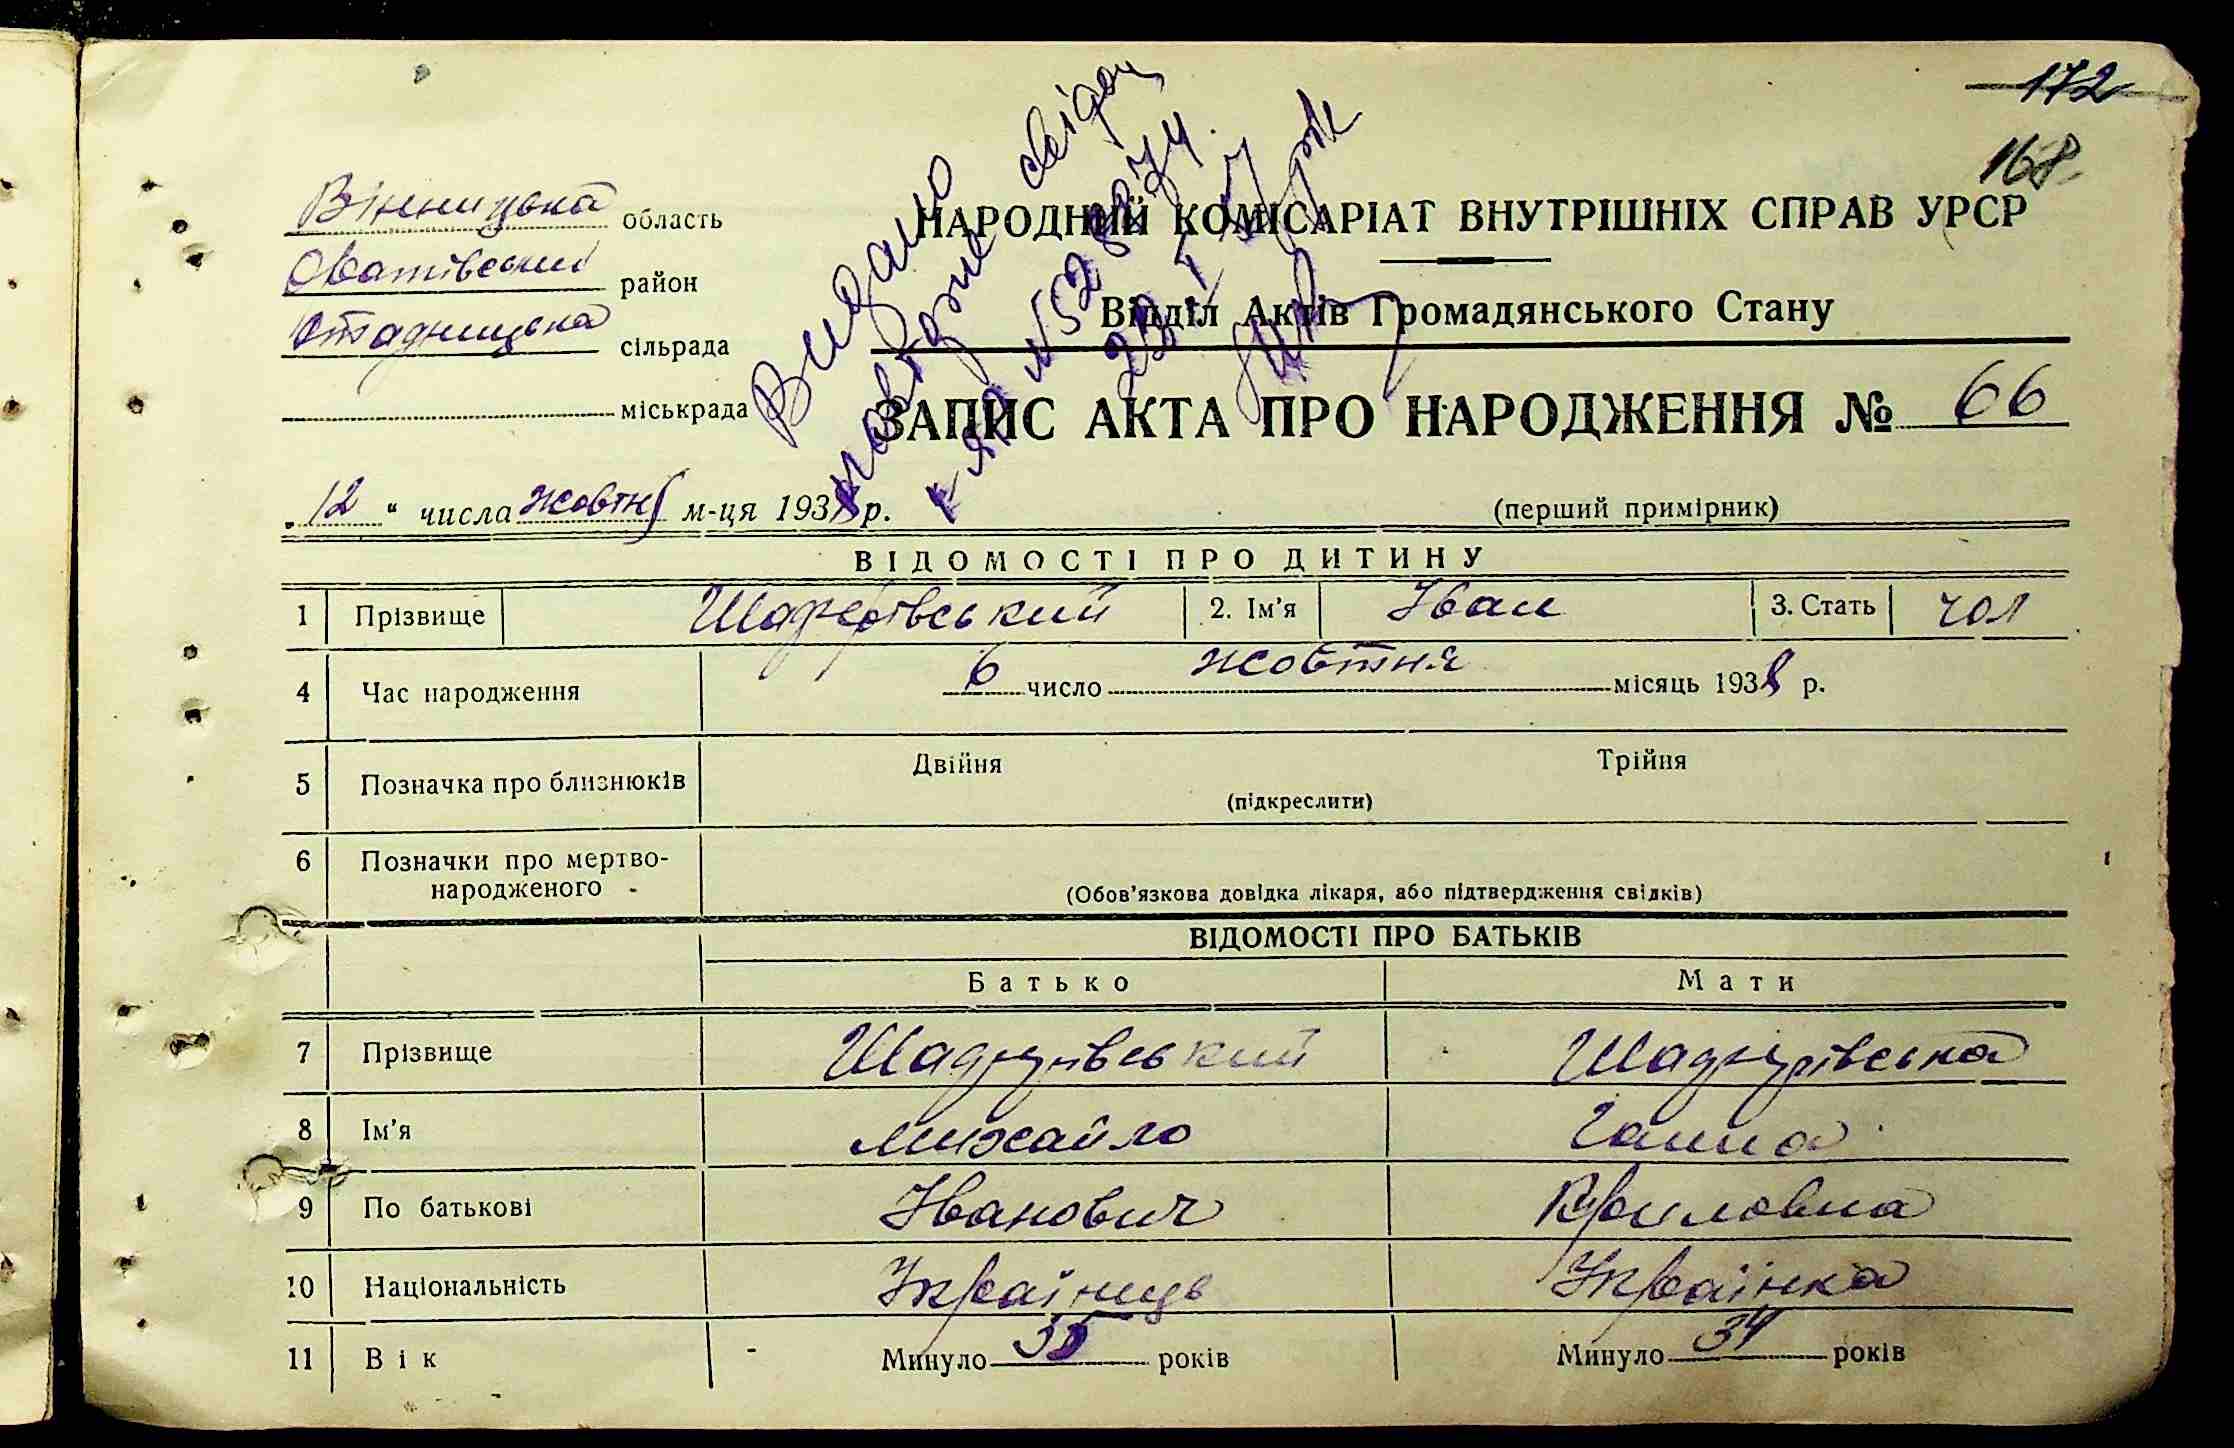 172
168
Вінницька область
НАРОДНИЙ КОМІСАРІАТ ВНУТРІШНІХ СПРАВ УРСР
район
Відділ Актів Громадянського Стану
Стадницька сільрада
міськрада
Видано
повторне свідоц
ЗАПИС АКТА ПРО НАРОДЖЕННЯ № 66
„12“ числа жовтня м-ця 1938 р.
(перший примірник)
ВІДОМОСТІ ПРО ДИТИНУ
1 Прізвище 2. Ім'я Іван 3. Стать чол
4 Час народження 6 число жовтня місяць 1938 р.
5 Позначка про близнюків Двійня Трійня
(підкреслити)
6 Позначки про мертво-
народженого
(Обов'язкова довідка лікаря, або підтвердження свідків)
ВІДОМОСТІ ПРО БАТЬКІВ
Батько Мати
7 Прізвище
8 Ім'я Михайло Ганна
9 По батькові Іванович Кириловна
10 Національність Українець Українка
11 Вік Минуло 35 років Минуло 34 років